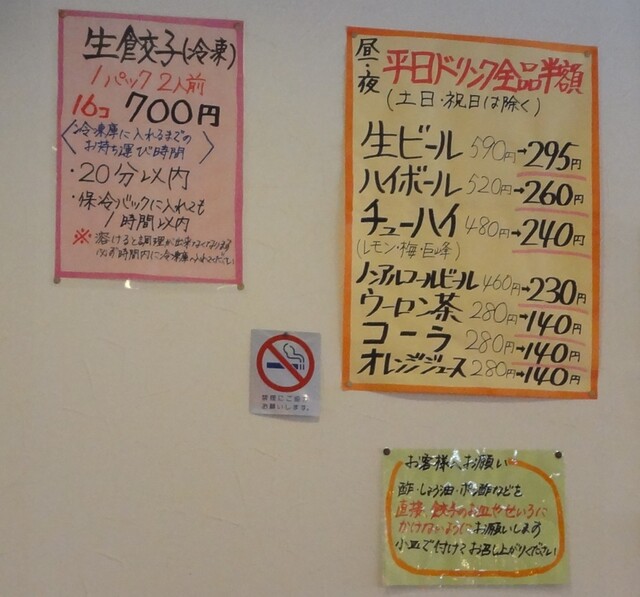 生餃子(冷凍)
1パック 2人前
16コ 700円
〈冷凍庫に入れるまでの
お持ち運び時間〉
・20分以内
・保冷パックに入れても
1時間以内
※溶けると調理が出来なくなります
必ず時間内に冷凍庫へ入れてください
昼・夜
平日ドリンク全品半額
(土日・祝日は除く)
生ビール 590円→295円
ハイボール 520円→260円
チューハイ 480円→240円
(レモン・梅・巨峰)
ノンアルコールビール 460円→230円
ウーロン茶 280円→140円
コーラ 280円→140円
オレンジジュース 280円→140円
禁煙にご協力
お願いします。
お客様へお願い
酢・しょう油・ポン酢などを
直接 餃子のお皿やせいろに
かけないようにお願いします
小皿で付けてお召し上がりください